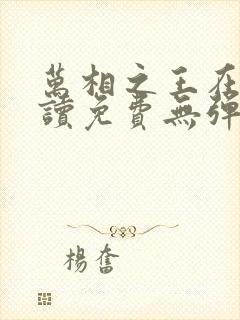 萬相之王在
讀免費無彈
楊奮